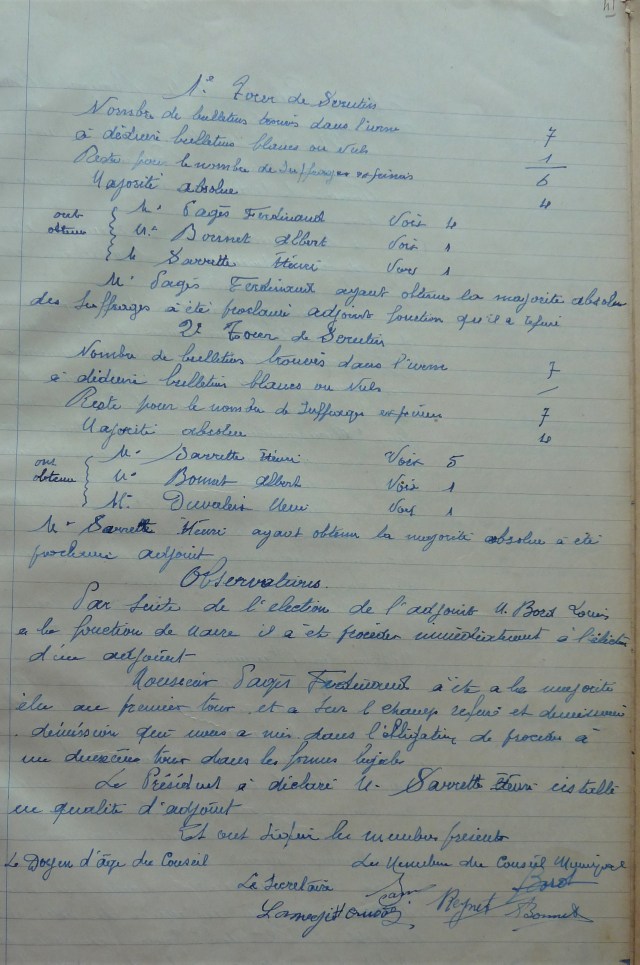 1e Tour de Scrutin
Nombre de bulletins trouvés dans l'urne 7
à déduire bulletins blancs ou nuls 1
Reste pour le nombre de suffrages exprimés 6
Majorité absolue 4
ont obtenu { Mr Pagès Ferdinand Voix 4
Mr Bonnet Albert Voix 1
M Sarrette Henri Voix 1
Mr Pagès Ferdinand ayant obtenu la majorité absolue
des suffrages à été proclamé adjoint fonction qu'il a refusé
2e Tour de Scrutin
Nombre de bulletins trouvés dans l'urne 7
à déduire bulletin blancs ou nuls
Reste pour le nombre de suffrages exprimés 7
Majorité absolue 4
ont obtenu { Mr Sarrette Henri Voix 5
Mr Bonnet Albert Voix 1
Mr Henri Voix 1
Mr Sarrette Henri ayant obtenu la majorité absolue à été
proclamé adjoint
Observations
Par suite de l'élection de l'adjoint M. Bord Louis
a la fonction de Maire il à été procéder immédiatement à l'élection
d'un adjoint
Monsieur Pagès Ferdinand à été a la majorité
élu au premier tour et a sur l champ refusé et
démission qui nous a mis dans l'obligation de procéder à
un deuxième tour dans les formes légales
Le Président à déclaré M. Sarrette Henri installé
en qualité d'adjoint
Et ont signé les membres présents
Le Doyen d'âge du Conseil Les Membres du Conseil Municipal
Le Secrétaire Bord
Reynet Bonnet